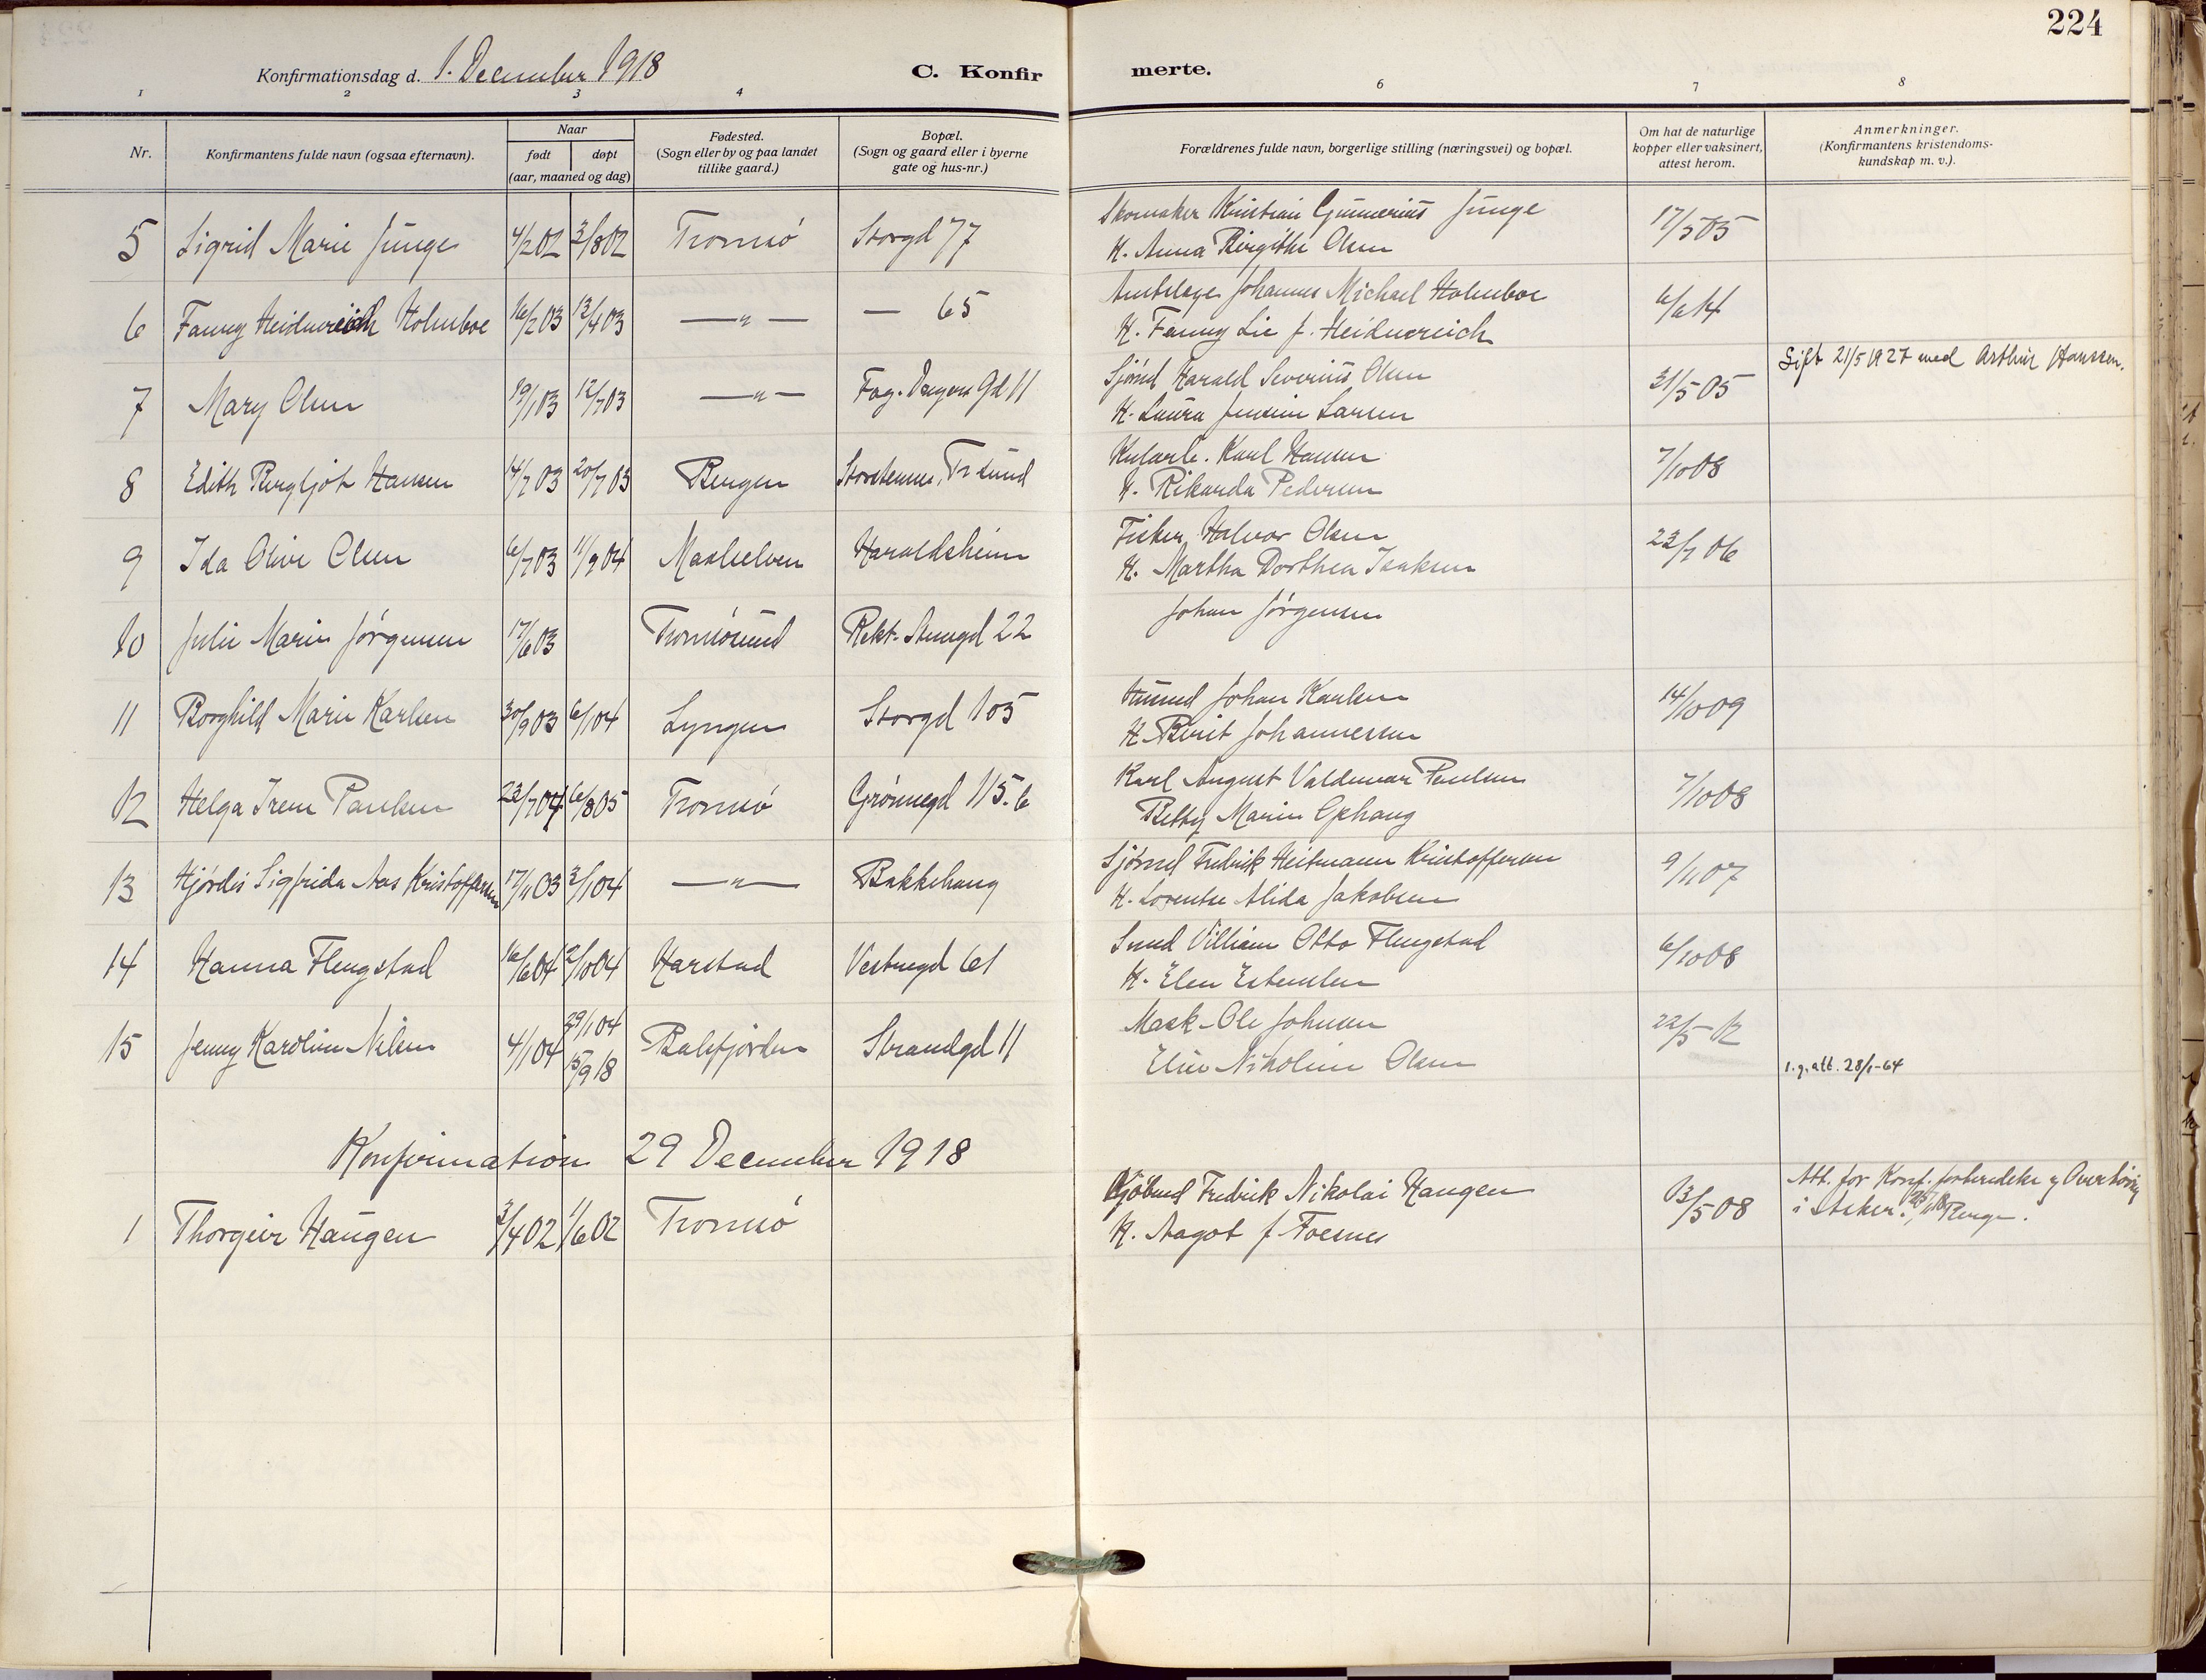 224
Konfirmationsdag d. 1. December 1918
C. Konfir merte.
1 2 3 4 6 7 8
Nr.
Konfirmantens fulde navn (ogsaa efternavn).
Naar
født døpt
(aar, maaned og dag)
Fødested.
(Sogn eller by og paa landet
tillike gaard.)
Bopæl.
(Sogn og gaard eller i byerne
gate og hus-nr.)
Forældrenes fulde navn, borgerlige stilling (næringsvei) og bopæl.
Om hat de naturlige
kopper eller vaksinert,
attest herom.
Anmerkninger.
(Konfirmantens kristendoms-
kundskap m. v.).
5 Sigrid Marie Junge 4/2 02 3/8 02 Tromsö Storgd 77 Skomaker Kristian Gunnerius Junge 17/5 05
H. Anna Birgithe Olsen
6 Fanny Heidenreich Holmboe 16/2 03 12/4 03 —"— — 65 Amtslæge Johannes Michael Holmboe 6/6 14
H. Fanny Lie f. Heidenreich
7 Mary Olsen 19/1 03 12/7 03 —"— Fog. Dreyers Gd 11 Sjömd Harald Severius Olsen 31/5 05 Gift 21/5 1927 med Arthur Hanssen.
H. Laura Jensine Larsen
8 Edith Bergljot Hansen 14/7 03 20/7 03 Bergen Storstennes, Tr sund Kularb. Karl Hansen 7/10 08
H. Rikarda Pedersen
9 Ida Olive Olsen 6/7 03 11/9 04 Maalselven Haraldsheim Fisker Halvor Olsen 23/7 06
H. Martha Dorthea Isaksen
10 Julie Marie Jörgensen 17/6 03 Tromsösund Rekt. Steengd 22 Johan Jörgensen
11 Borghild Marie Karlsen 30/9 03 6/1 04 Lyngen Storgd 105 Husmd Johan Karlsen 14/10 09
H. Berit Johannessen
12 Helga Irene Paulsen 23/7 04 6/8 05 Tromsö Grönnegd 115. b Karl August Valdemar Paulsen 7/10 08
Betty Marie Ephaug
13 Hjördis Sigfrida Aas Kristoffersen 17/11 03 3/1 04 —"— Bakkehaug Sjömd Fredrik Heitmann Kristoffersen 9/11 07
H. Lorentse Alida Jakobsen
14 Hanna Flengstad 16/6 04 2/10 04 Harstad Vestregd 61 Smed Villiam Otto Flengstad 6/10 08
H. Elen Estensen
15 Jenny Karoline Nilsen 4/1 04 29/1 04 Balsfjorden Strandgd 11 Mask. Ole Johnsen 22/5 12
15/9 18 Elise Nikoline Olsen
1. g. att. 28/1-64
Konfirmation 29 December 1918
1 Thorgeir Haugen 3/4 02 1/6 02 Tromsö Kjöbmd Fredrik Nikolai Haugen 13/5 08 Att. for Konf. forberedelse og Overhöring
H. Aagot f. Foesnes i Asker.